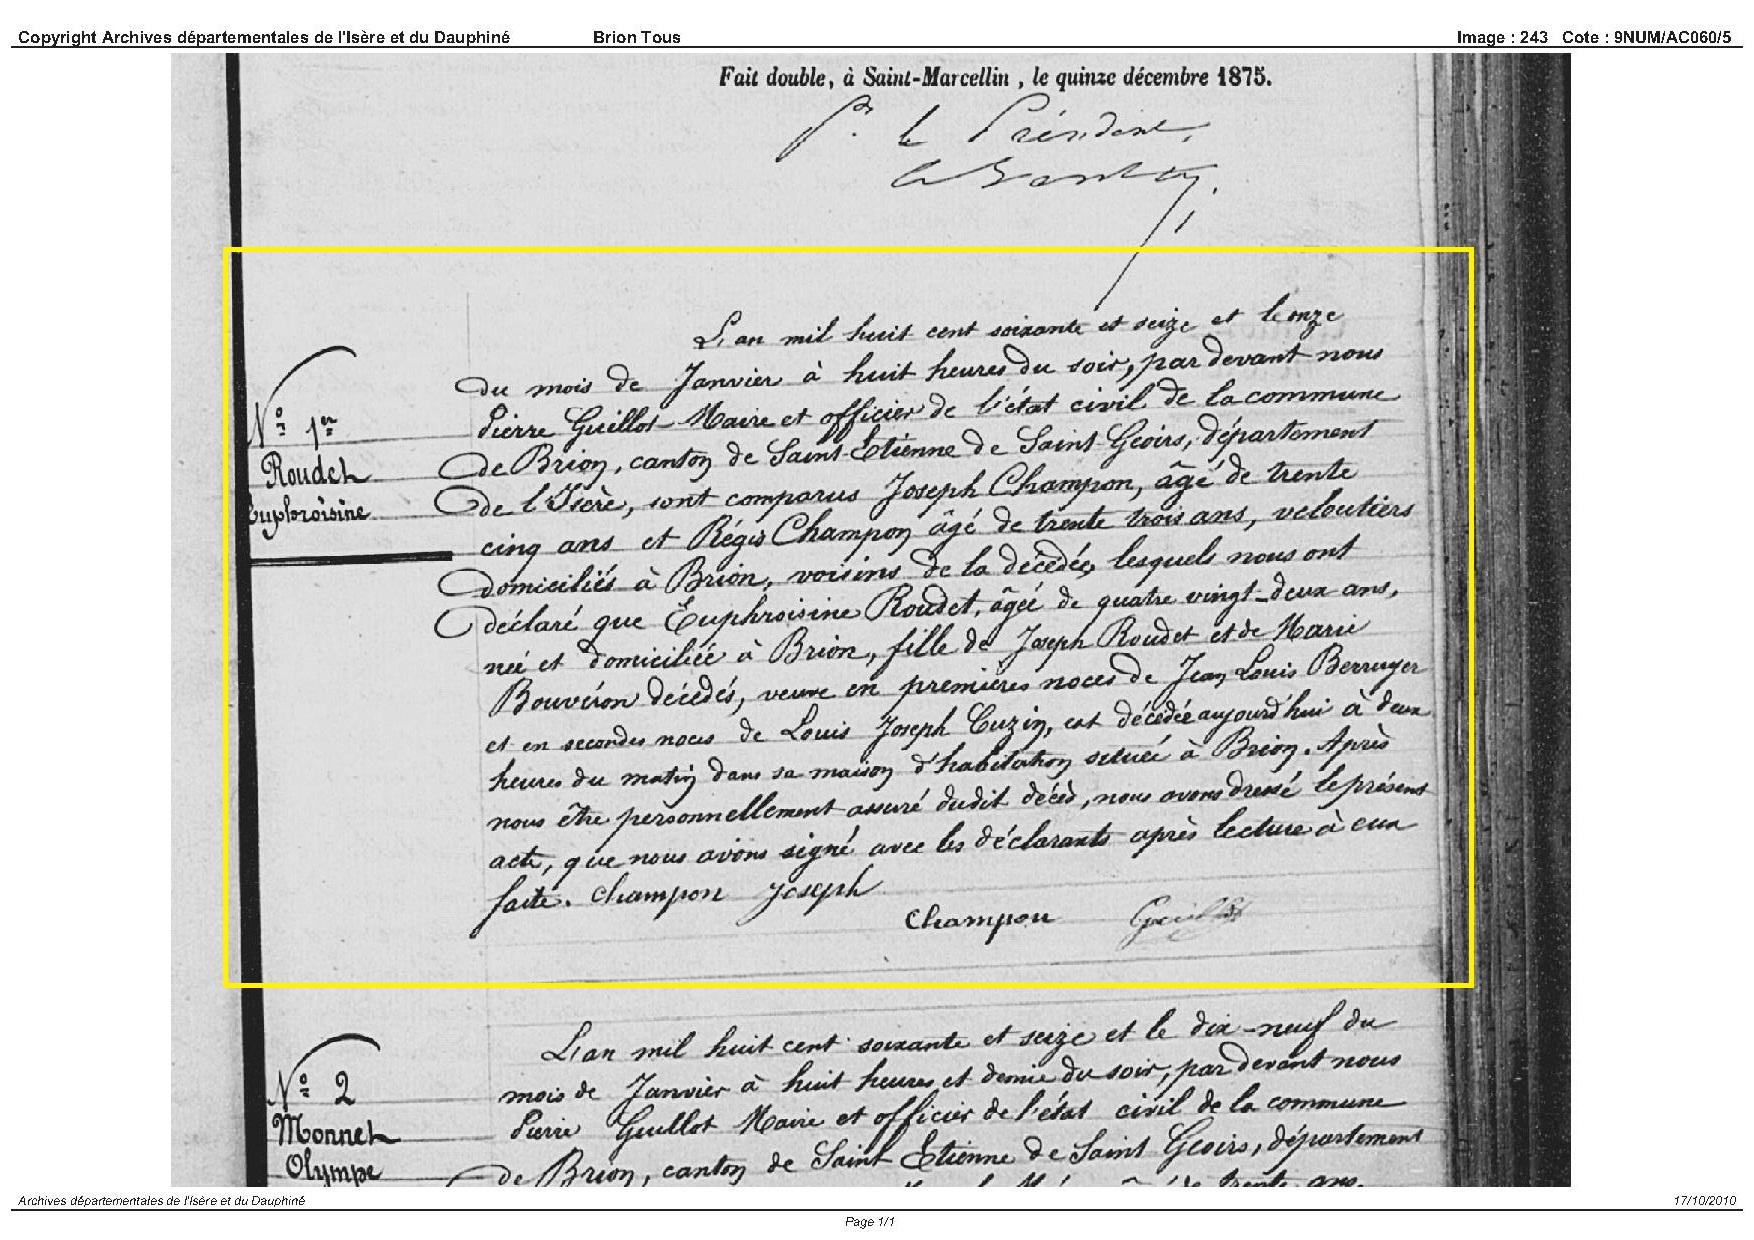 Copyright Archives départementales de l'Isère et du Dauphiné Brion Tous Image : 243 Cote : 9NUM/AC060/5
Fait double, à Saint-Marcellin, le quinze décembre 1875.
Pr le Président
L'an mil huit cent soixante et seize et le onze
du mois de Janvier à huit heures du soir, par devant nous
Pierre Guillot Maire et officier de l'état civil de la commune
de Brion, canton de Saint-Etienne de Saint Geoirs, département
de l'Isère, sont comparus Joseph Champon, âgé de trente
cinq ans et Régis Champon âgé de trente trois ans, veloutiers
domiciliés à Brion, voisins de la décédée, lesquels nous ont
déclaré que Euphroisine Roudet, âgée de quatre vingt-deux ans,
née et domiciliée à Brion, fille de Joseph Roudet et de Marie
Bouvéron décédés, veuve en premières noces de Jean Louis Berruyer
et en secondes noces de Louis Joseph Cuzin, est décédée aujourd'hui à deux
heures du matin dans sa maison d'habitation située à Brion. Après
nous être personnellement assuré dudit décès, nous avons dressé le présent
acte, que nous avons signé avec les déclarants après lecture à eux
faite. Champon Joseph
Champon Guillot
N° 1er
Roudet
Euphroisine
L'an mil huit cent soixante et seize et le dix-neuf du
mois de Janvier à huit heures et demie du soir, par devant nous
Pierre Guillot Maire et officier de l'état civil de la commune
de Brion, canton de Saint Etienne de Saint Geoirs, département
N° 2
Monnet
Olympe
Archives départementales de l'Isère et du Dauphiné 17/10/2010
Page 1/1